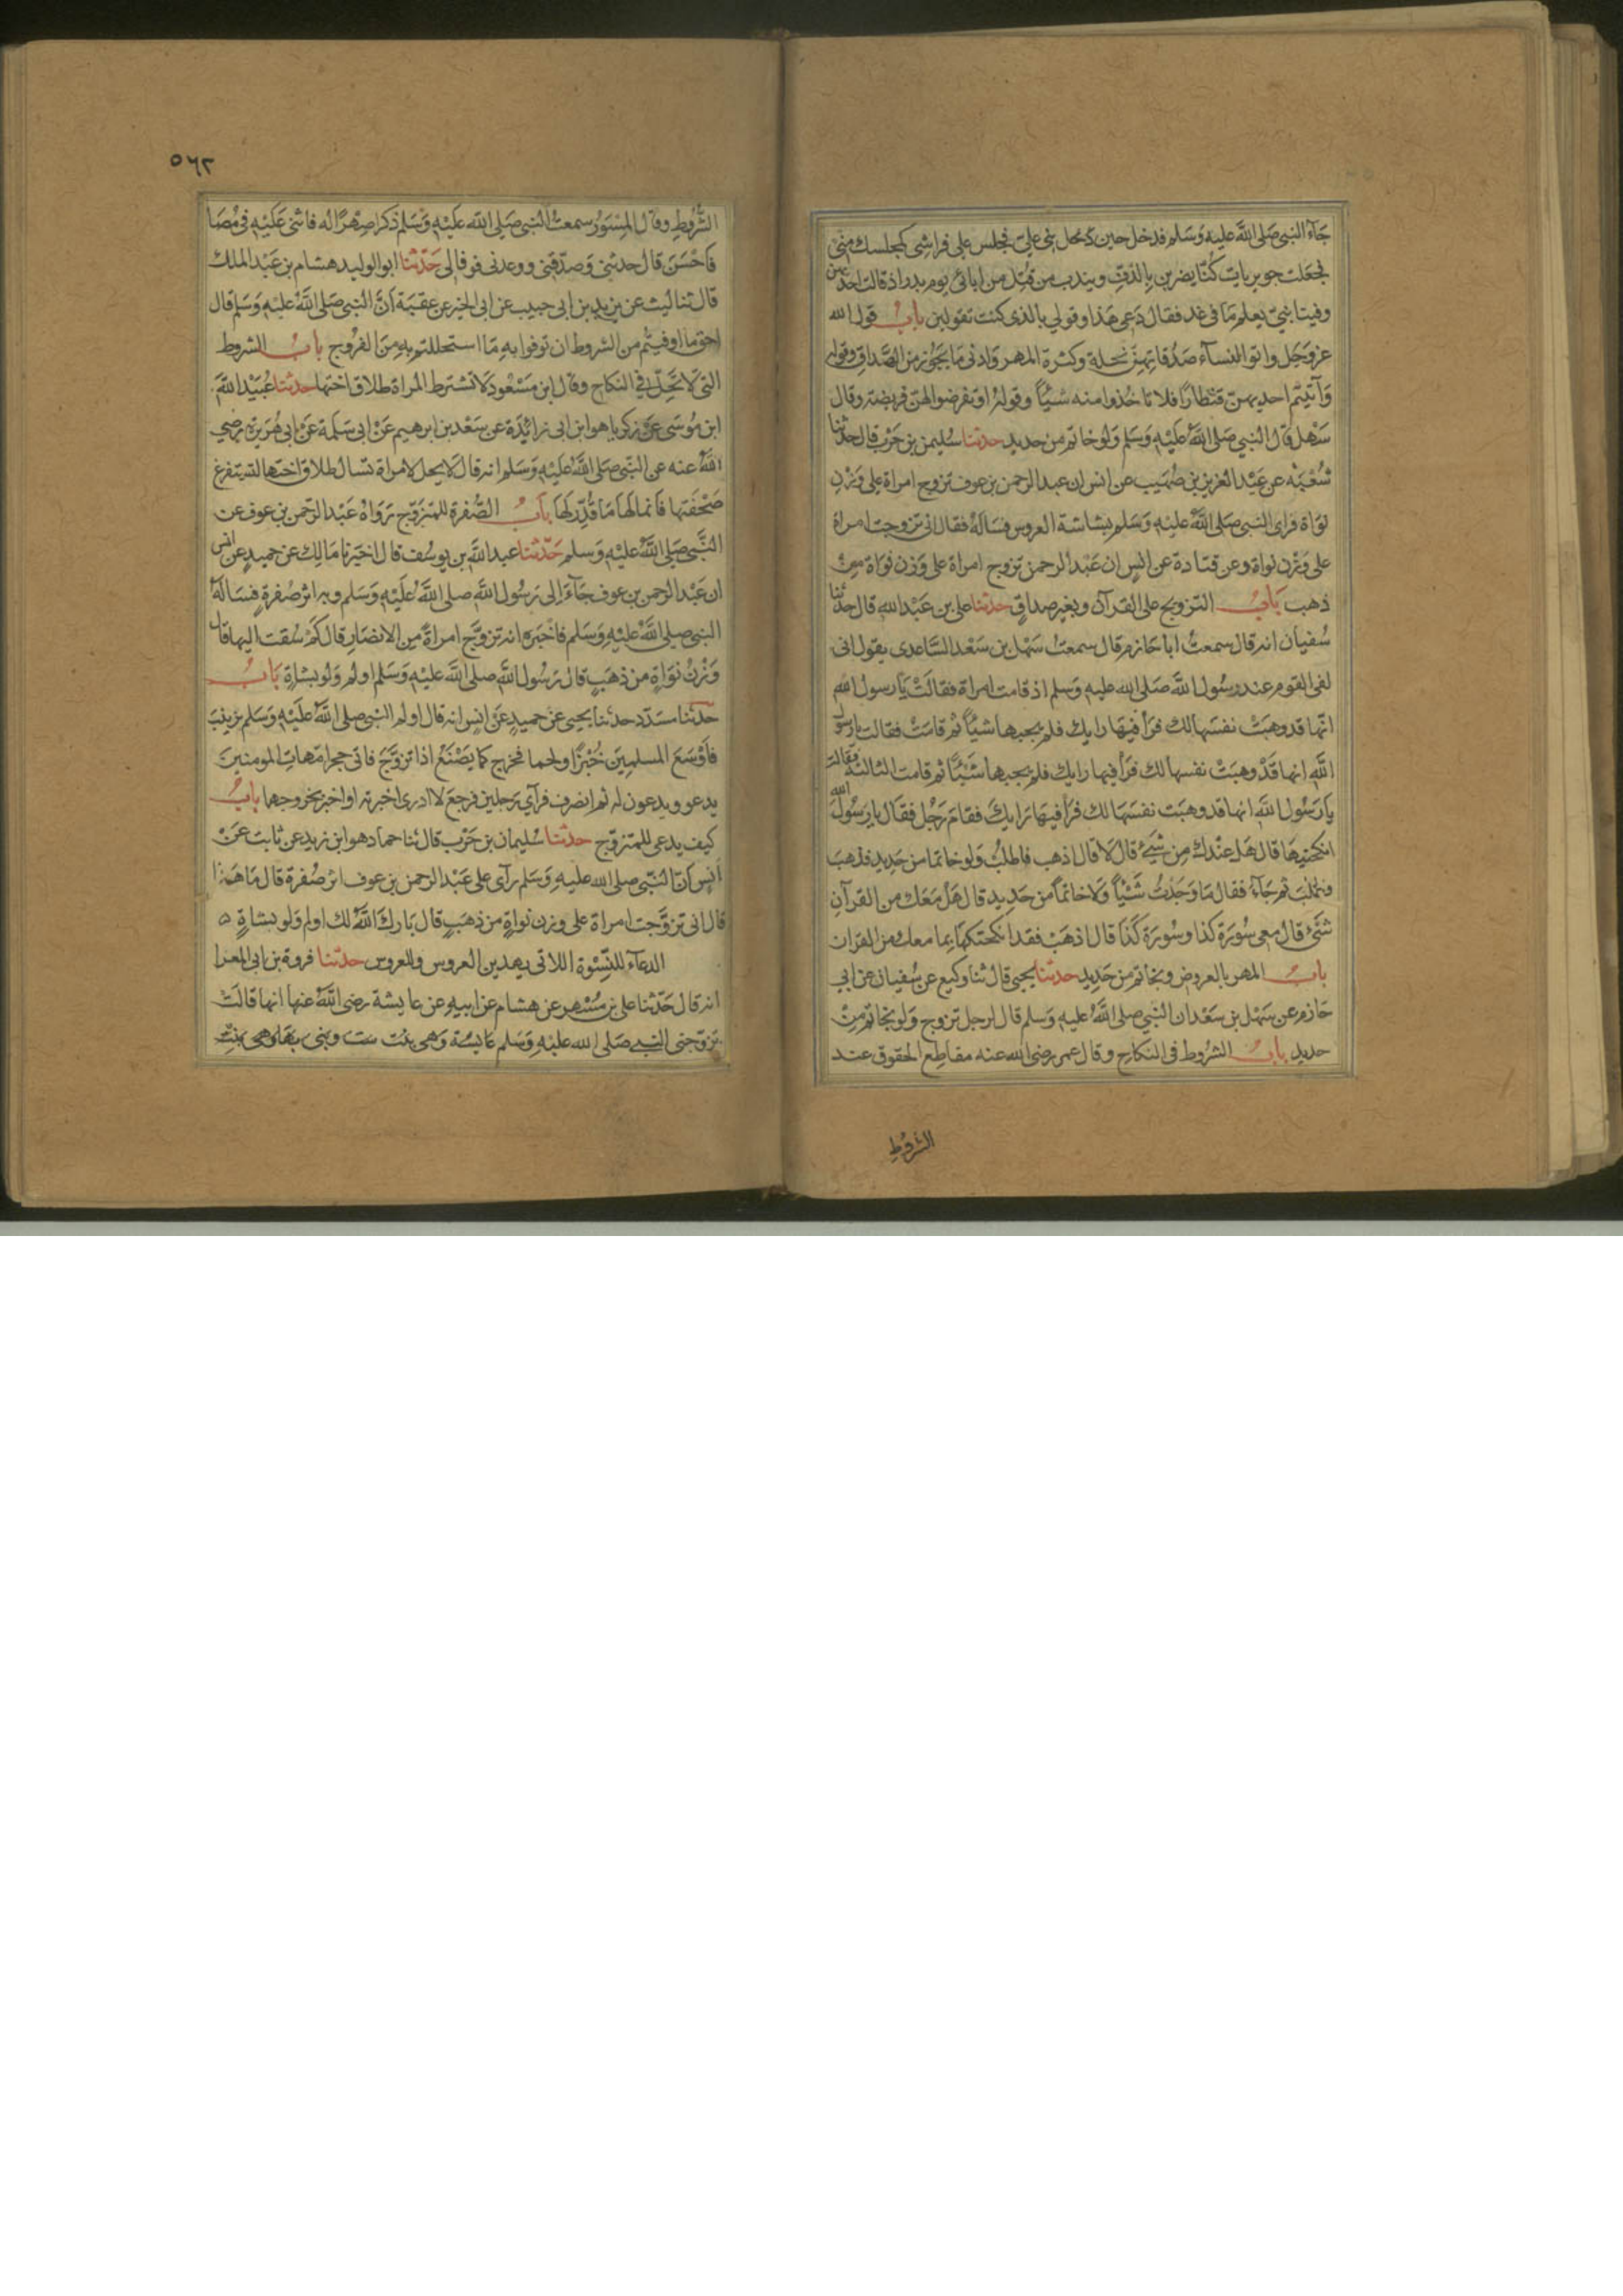 جَآءَ النبي صَلى اللهُ عليه وَسَلم فدخل حين دخل بني علي فجلس على فراشي كمجلسك مني
فجعلت جويريات كُنّا يضربن بالدّفِ ويندب من قُتِل من ابائى يوم بدر اذ قالت احديهن
وفينا نبيّ يعلم مَا فى غد فقال دَعى هَذا وقولي بالذى كنت تقولين بابُ قول الله
عز وجَل واتوا النساَء صَدُقاتِهنّ نحلة وكثرة المهر وَادنى مَا يَجُوز من الصَّداق وقوله
وَآتيتم احديهنّ قنطارًا فلا تاخُذوا منه شيئًا وقوله اوتفرضوا لهنّ فريضة وقال
سَهْل قال النبي صَلى اللهُ عَليْه وَسَلم وَلو خاتم من حديد حدثنا سُليمن بن حَرْب قال حدثنا
شُعْبَة عن عَبْد العزيز بن صُهَيب عن انس ان عبد الرحمن بن عوف تزوج امراة على وَزْن
نوَاة فراى النبي صَلى اللهُ عليْه وَسَلم بشاشة العروس فسَالهُ فقال انى تزوجت امراة
على وَزْن نواة وعن قتادة عن انس ان عَبْد الرحمن تزوج امراة على وَزن نَوَاة من
ذهب بَابُ التزويج على القرآن وبغير صداقٍ حدثنا على بن عَبْد الله قال حدثنا
سُفيان انه قال سمعتُ ابا حَازم قال سمعتُ سَهْل بن سَعْد السَّاعدى يقول انى
لفى القوم عند رسُول اللهِ صَلى الله عليه وَسلم اذ قامت امراة فقالَتْ يَا رسول الله
انّها قد وهبَتْ نفسَها لك فرَأ فيها رايك فلم يجبها شيْئًا ثم قامَتْ فقالت يا رسول
اللهِ انها قَدْ وهبَتْ نفسها لك فرَأ فيها رايك فلم يجبها شَيْئًا ثم قامت الثالثة فقالت
يا رَسُول اللهِ انها قد وهبَت نفسَهَا لك فرَأ فيها رَايكَ فقامَ رَجُل فقَال يا رسُولَ الله
انكحنيهَا قال هَل عِنْدك مِن شَيْءٍ قال لا قال اذهب فاطلبْ وَلو خاتما من حَدِيد فذهبَ
فطلبَ ثم جَآء فقال مَا وَجَدْتُ شَيْئًا وَلا خاتمًا من حَدِيد قال هَلْ مَعَك من القرآنِ
شَىْء قال معى سُورَة كذا وسُورَة كَذا قال اذهَبْ فقد انكحتكهَا بما معك من القران
بابُ المهر بالعروضِ وبخاتم من حَدِيد حدثنا يحيى قال ثنا وكيع عن سُفيان عن ابي
حَازم عن سَهْل بن سَعْد ان النبي صلى اللهُ عليه وَسلم قال لرجل تزوج وَلو بخاتم مِنْ
حديد بابُ الشرُوط فى النكاح وقال عمر رضى الله عنه مقاطع الحقوق عند
الشرُوطِ
٥٦٢
الشُّرُوطِ وقال المِسْوَرُ سمعتُ النبي صَلى الله عَليْه وَسَلم ذكر صِهْرًا له فاثنى عَليْه فى مُصَا
فاحْسَنَ قال حدثنى وَصدّقنى ووعدنى فوفا لى حَدّثنا ابو الوليد هشام بن عَبْد الملك
قال ثنا ليث عن يزيد بن ابى حبيب عن ابى الخير عن عقبَة اَنَّ النبي صَلى اللهُ عليْه وَسَلم قال
احق ما اوفيتم من الشروط ان توفوا به مَا استحللتم به مِنَ الفرُوج بابُ الشروط
التي لَا تَحِلّ فى النكاح وقال ابن مَسْعُود لَا تشترط المراة طلاق اختها حدثنا عُبَيْد اللهِ
ابن مُوسَى عَن زكريا هو ابن ابى زائِدَة عن سَعْد بن ابرهيم عَنْ ابى سَلمة عَنْ ابى هُرَيْرَة رضي
اللهُ عنه عن النَّبي صَلى اللهُ عَليْه وَسَلم انه قال لَا يحل لامراة تسال طلاق اختها لتستفرغ
صَحْفَتها فانما لهَا مَا قُدّر لهَا بَابُ الصُّفرة للمتزوّج رَوَاهُ عَبْد الرّحمن بن عوف عن
النَّبي صَلى اللهُ عليْه وَسلم حَدّثنا عبد اللهِ بن يوسُف قال اخبَرنا مَالِك عن حميدٍ عن انس
ان عَبْد الرحمن بن عوف جَآءَ الى رَسُول اللهِ صلى اللهُ عَلَيْه وَسَلم وبه اثر صُفرةٍ فسَالهُ
النبي صلى اللهُ عليْه وَسَلم فاخْبَره انه تزوَّج امراةً من الانصَارِ قال كَمْ سُقت اليها قال
وَزْنُ نوَاةٍ من ذهَبٍ قال رَسُول اللهِ صلى اللهُ عليْه وَسَلم اولم وَلو بشاةٍ بَابُ
حَدّثنا مسَدّد حدثنا يحيى عَنْ حميدٍ عَن انسٍ انه قال اولم النبي صلى اللهُ عَليْه وَسَلم بزينبَ
فاَوْسَعَ المسلمِينَ خُبْزًا ولحما فخرج كما يَصْنَعُ اذا تزوَّجَ فاتى حجر امّهات المومنينَ
يدعو ويدعون له ثم انصرف فرآى رَجلين فرجعَ لا ادرى اخبرته او اخبر بخروجهما بابُ
كيف يدعى للمتزوّج حدثنا سُليمان بن حَرْب قال ثنا حماد هو ابن زيد عن ثابت عَنْ
اَنس اَنّ النّبي صلى الله عليه وَسَلم رآى على عَبْد الرحمن بن عوف اثر صُفرة قال مَا هَذا
قال انى تزوَّجت امراة على وزن نواةٍ من ذهَبٍ قال بَاركَ اللهُ لك اولم وَلو بشاةٍ ٥
الدعَآء للنِّسْوة اللاتى يهدين العروس وللعروس حدثنا فروة بن ابى المغرا
انه قال حَدّثنا على بن مُسْهر عن هشام عن ابيهِ عن عايشة رضى اللهُ عنها انها قالَتْ
تزوّجنى النبي صَلى الله عليْه وَسَلم